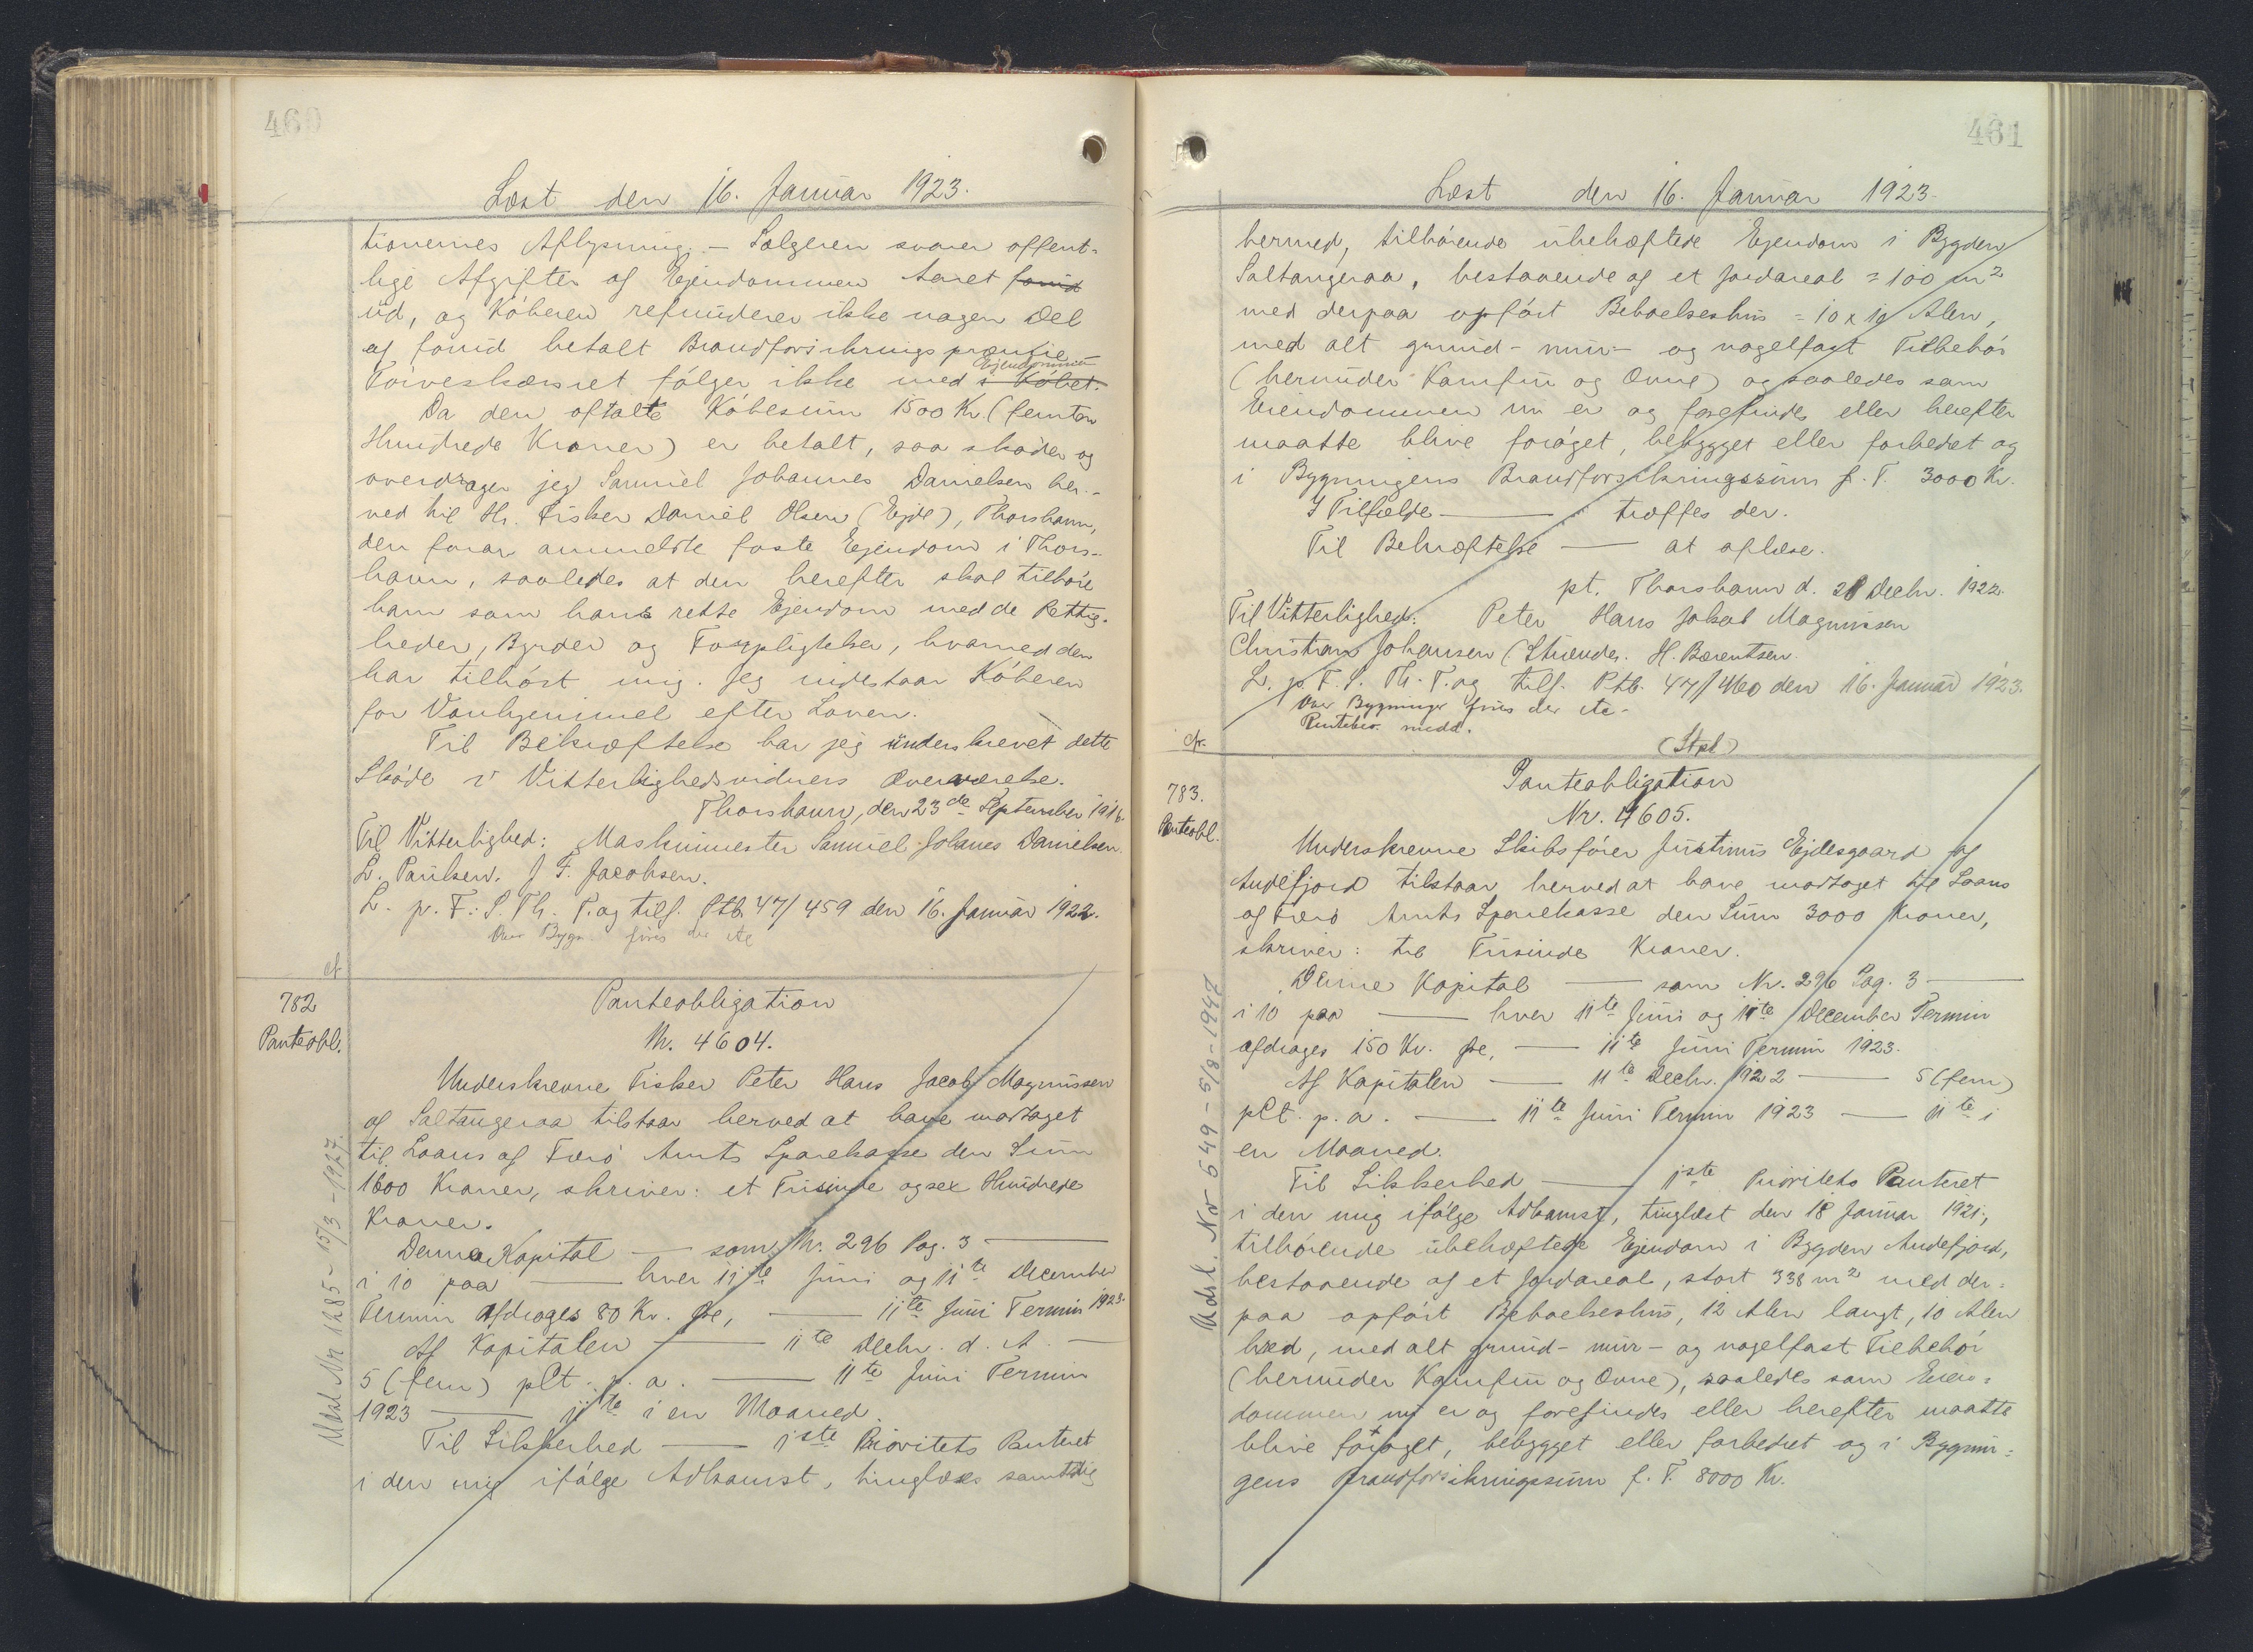 460
Læst den 16. Januar 1923.
tionernes Aflysning. — Sælgeren svarer offent-
lige Afgifter af Ejendommen Aaret
ud, og Køberen refunderer ikke nogen Del
af forud betalt Brandforsikringspræmie —
Ejendommen
Tørveskæret følger ikke med i Købet.
Da den aftalte Købesum 1500 Kr. (femten
Hundrede Kroner) er betalt, saa skøder og
overdrager jeg Samuel Johannes Danielsen her-
ved til Hr. Fisker Daniel Olsen (Ejde), Thorshavn,
den foran anmeldte faste Ejendom i Thors-
havn, saaledes at den herefter skal tilhøre
ham som hans rette Ejendom med de Rettig-
heder, Byrder og Forpligtelser, hvormed den
har tilhørt mig. Jeg indestaar Køberen
for Vanhjemmel efter Loven.
Til Bekræftelse har jeg underskrevet dette
Skøde i Vitterlighedsvidners Overværelse.
Thorshavn, den 23de September 1916.
Til Vitterlighed: Maskinmester Samuel Johanes Danielsen.
L. Paulsen. J. F. Jacobsen.
L. p. F. S. Th. T. og tilf. Ptb. 47/459 den 16. Januar 1922.
Over Bygn. føres der etc
cf.
782
Panteobl.
Panteobligation
Nr. 4604.
Underskrevne Fisker Peter Hans Jacob Magnussen
af Saltangeraa tilstaar herved at have modtaget
til Laans af Færø Amts Sparekasse den Sum
1600 Kroner, skriver: et Tusinde og sex Hundrede
Kroner.
Denne Kapital — som Nr. 296 Pag. 3 —
i 10 paa — hver 11te Juni og 11te December
Termin afdrages 80 Kr. pe, — 11te Juni Termin 1923.
Af Kapitalen — 11te Decbr. d. A. —
5 (fem) pCt. p. a. — 11te Juni Termin
1923 — 11te i en Maaned.
Til Sikkerhed — 1ste Prioritets Panteret
i den mig ifølge Adkomst, tinglæses samtidig
Udsl. Nr 1285 - 15/3 - 1927.
461
Læst den 16. Januar 1923.
hermed, tilhørende ubehæftede Ejendom i Bygden
Saltangeraa, bestaaende af et Jordareal = 100 m2
med derpaa opført Beboelseshus = 10 x 10 Alen,
med alt grund- mur- og nagelfast Tilbehør
(herunder Kamfuu og Ovne) og saaledes som
Eiendommen nu er og forefindes eller herefter
maatte blive forøget, bebygget eller forbedret og
i Bygningens Brandforsikringssum f. T. 3000 Kr.
I Tilfælde — træffes der.
Til Bekræftelse — at aflæse.
pt. Thorshavn d. 21 Decbr. 1922.
Til Vitterlighed: Peter Hans Jakob Magnussen
Christian Johansen (Strænder. H. Bærentsen.
L. p. F. S. Th. T. og tilf. Ptb. 47/460 den 16. Januar 1923.
Over Bygninger føres der etc-
Rentebes. medd.
cfr.
(Stpl)
783.
Panteobl.
Panteobligation
Nr. 4605.
Underskrevne Skibsfører Justinus Ejdesgaard af
Andefjord tilstaar herved at have modtaget til Laans
af Færø Amts Sparekasse den Sum 3000 Kroner,
skriver: tre Tusinde Kroner.
Denne Kapital — som Nr. 296 Pag. 3 —
i 10 paa — hver 11te Juni og 11te December Termin
afdrages 150 Kr. pe, — 11te Juni Termin 1923.
Af Kapitalen — 11te Decbr. 1922 — 5 (fem)
pCt. p. a. — 11te Juni Termin 1923 — 11te i
en Maaned.
Til Sikkerhed — 1ste Prioritets Panteret
i den mig ifølge Adkomst, tinglæst den 18 Januar 1921,
tilhørende ubehæftede Ejendom i Bygden Andefjord,
bestaaende af et Jordareal, stort 338 m2 med der=
paa opført Beboelseshus, 12 Alen langt, 10 Alen
bred, med alt grund- mur- og nagelfast Tilbehør
(herunder Kamfuu og Ovne), saaledes som Eien=
dommen nu er og forefindes eller herefter maatte
blive forøget, bebygget eller forbedret og i Bygnin=
gens Brandforsikringssum f. T. 8000 Kr.
Udsl. Nr 549 - 5/8 - 1947